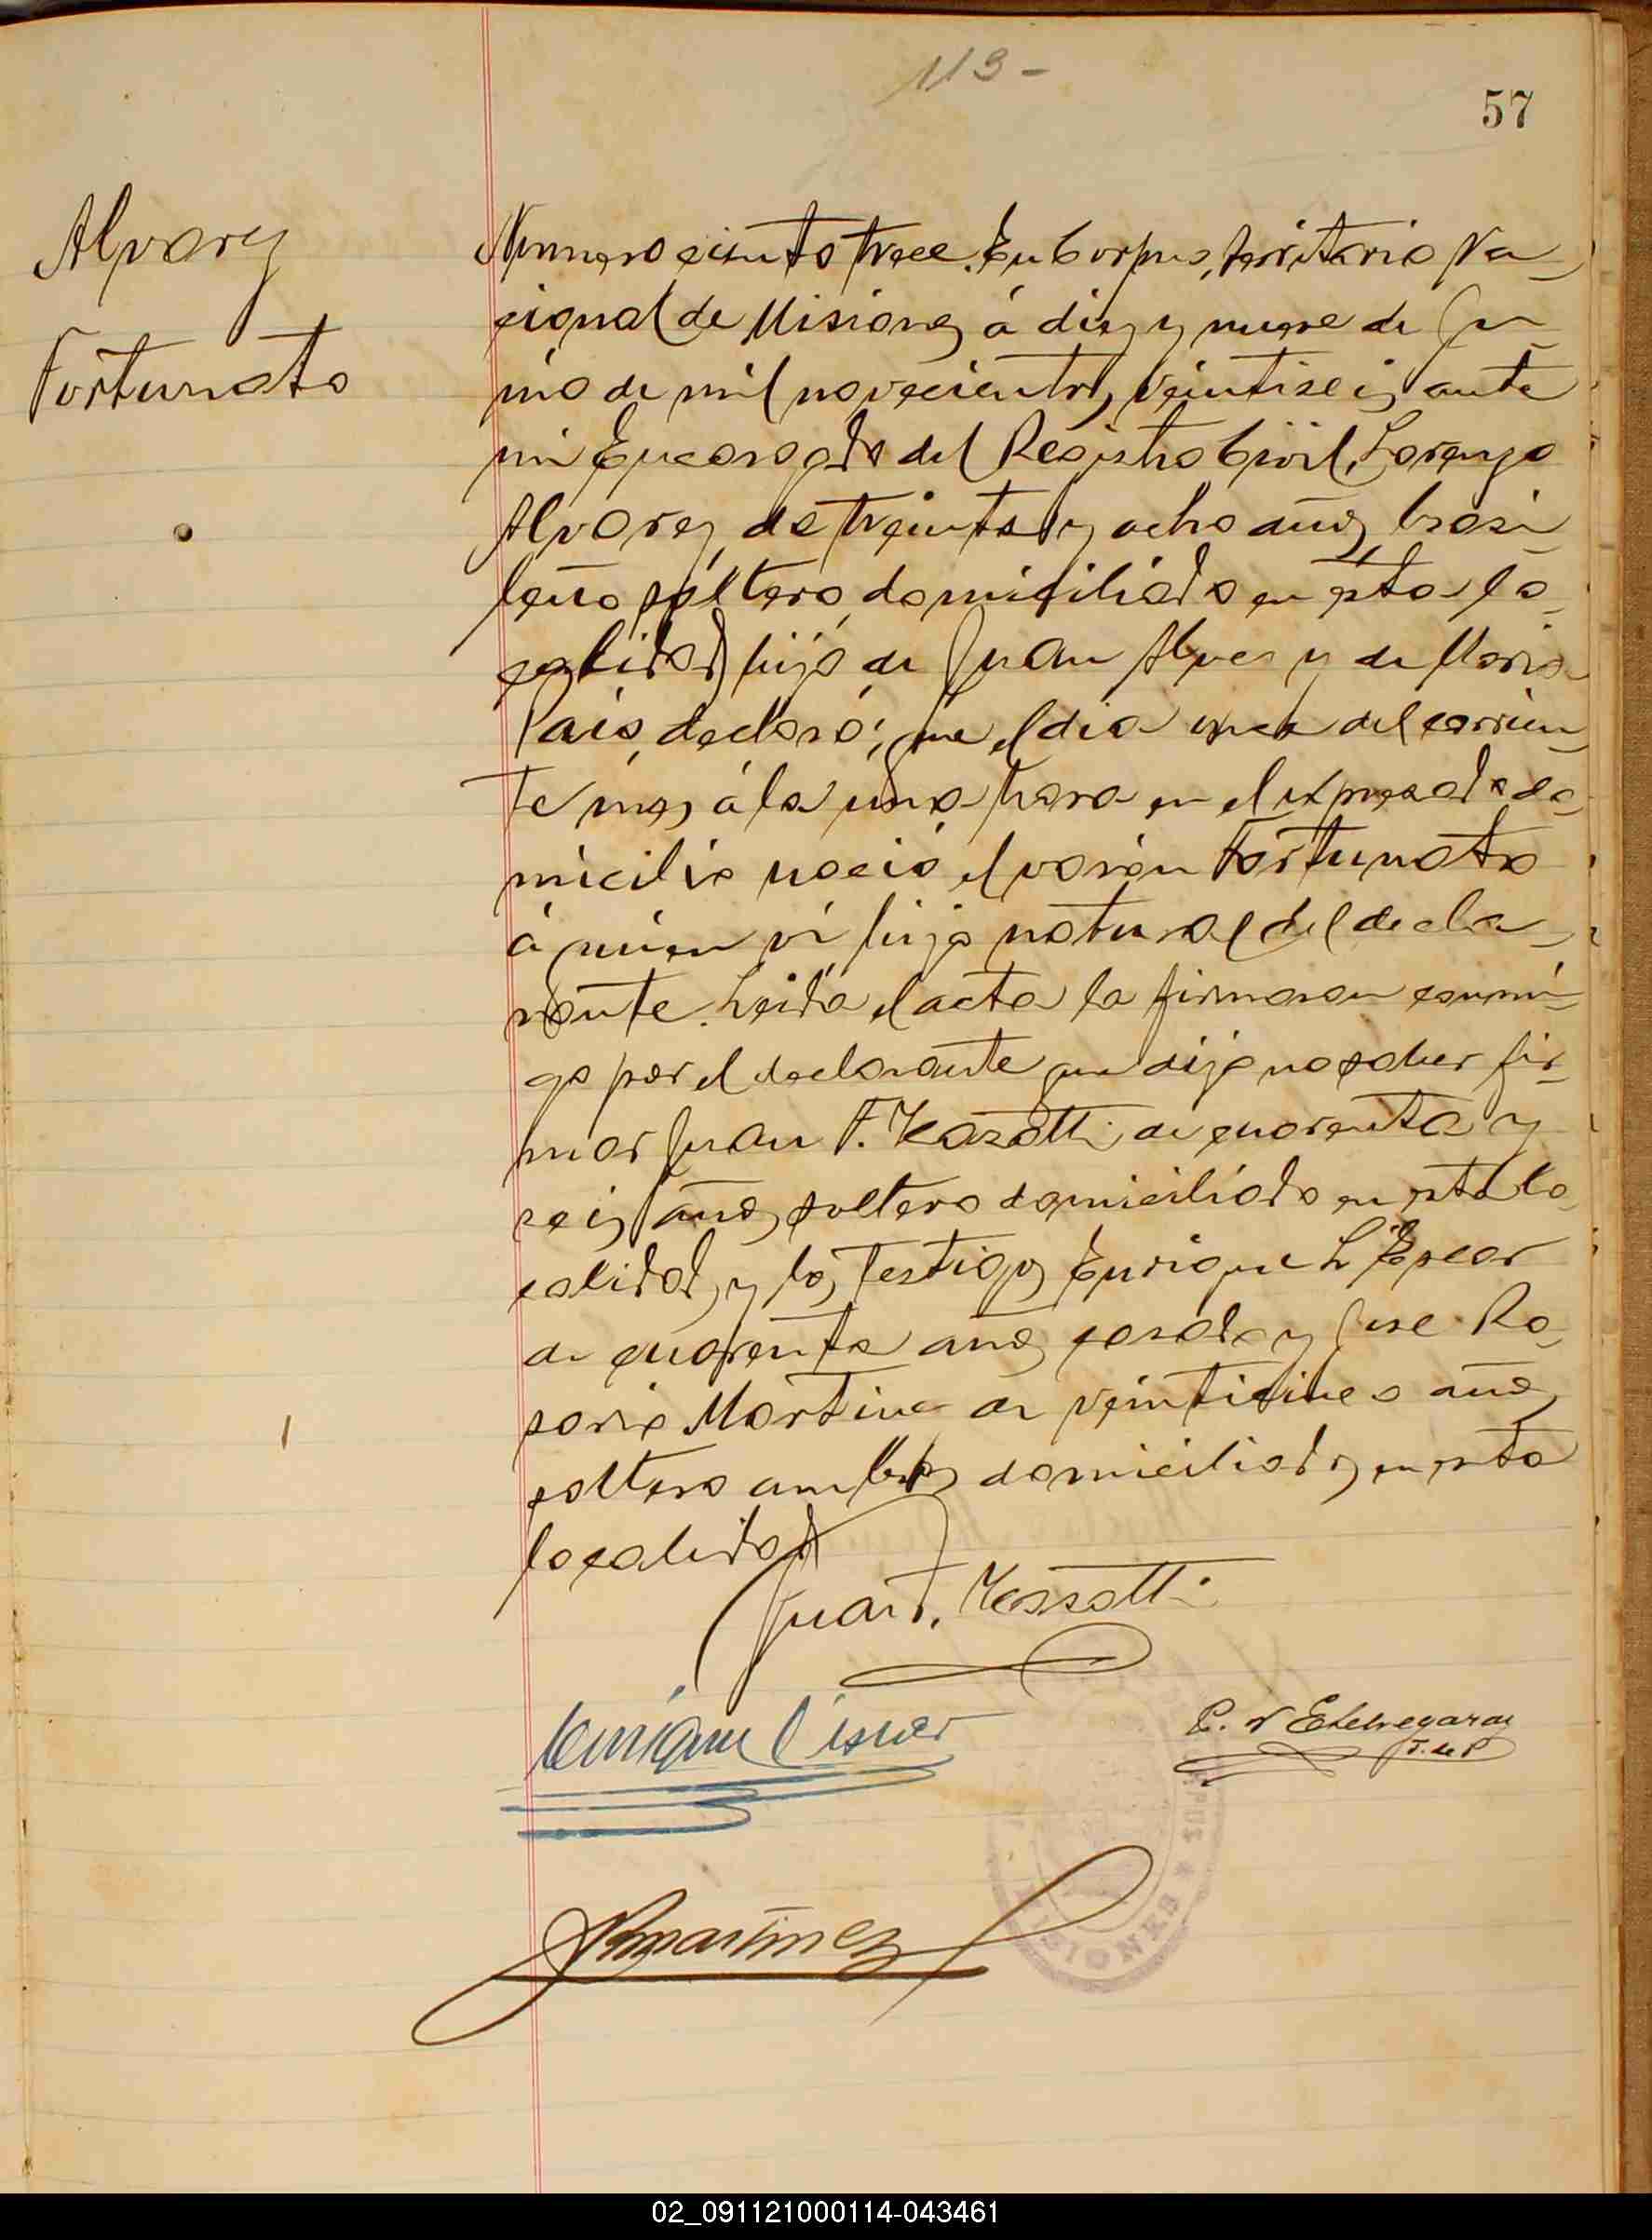 113-
57
Alvarez
Fortunato
Numero ciento trece. En Corpus, territorio Na-
cional de Misiones á diez y nueve de Ju-
nio de mil novecientos veintiseis ante
mi Encargado del Registro Civil, Lorenzo
Alvarez de treinta y ocho años brasi-
leño soltero, domiciliado en esta lo-
calidad hijo de Juan Alves y de Maria
Pais, declaró; que el dia once del corrien-
te mes á la una hora en el expresado do-
micilio nació el varón Fortunato
á quien vi hijo natural del decla-
rante. Leida el acta la firmaron conmi-
go por el declarante que dijo no saber fir-
mar Juan F. Kassotti de cuarenta y
seis años soltero domiciliado en esta lo-
calidad, y los testigos Enrique L
de cuarenta años casado y Jose Ro-
sario Martinez de veinticinco años
soltero ambos domiciliados en esta
localidad
Juan F. Kassotti
P. N Etchegaray
J. de P
Martinez
CORPUS * MISIONES
02_091121000114-043461